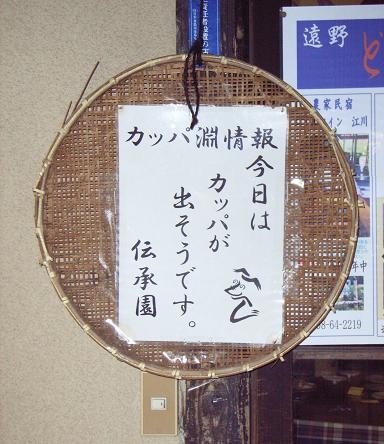 カッパ淵情報
今日は
カッパが
出そうです。
伝承園
遠野
ど
農家民宿
イン 江川
年中
8-64-2219